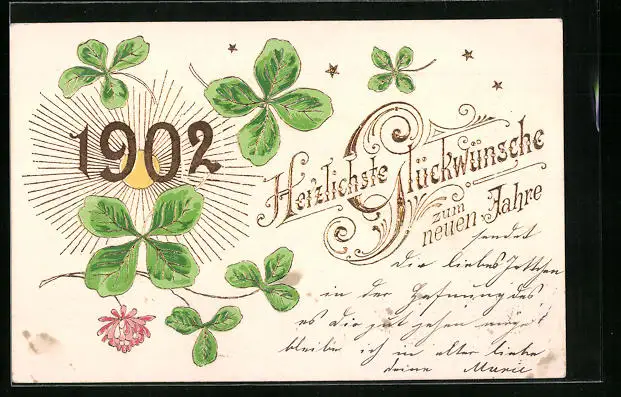 1902
Herzlichste Glückwünsche
zum
neuen Jahre
sendet
Dir liebes Jettchen
in der Hoffnung das
es Dir gut gehen möge
bleibe ich in alter Liebe
deine Marie